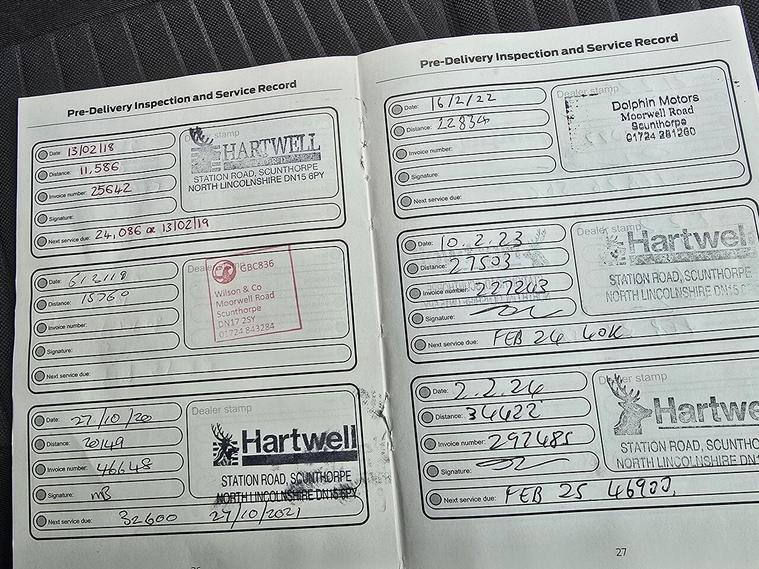 Pre-Delivery Inspection and Service Record
Date: 13/02/18
Distance: 11,586
Invoice number: 25642
Signature:
Next service due: 24,086 or 13/02/19
Dealer stamp
HARTWELL
STATION ROAD, SCUNTHORPE
NORTH LINCOLNSHIRE DN15 6PY
Date:
Distance: 15760
Invoice number:
Signature:
Next service due:
GBC836
Wilson & Co
Moorwell Road
Scunthorpe
DN17 2SY
01724 843284
Date: 27/10/20
Distance: 20149
Invoice number: 46648
Signature: mB
Next service due: 32600 27/10/2021
Dealer stamp
Hartwell
STATION ROAD, SCUNTHORPE
NORTH LINCOLNSHIRE DN15 6PY
Pre-Delivery Inspection and Service Record
Date: 16/2/22
Distance: 22834
Invoice number:
Signature:
Next service due:
Dealer stamp
Dolphin Motors
Moorwell Road
Scunthorpe
01724 281260
Date: 10.2.23
Distance: 27503
Invoice number: 227263
Signature:
Next service due: FEB 24 40K
Dealer stamp
Hartwell
STATION ROAD, SCUNTHORPE
NORTH LINCOLNSHIRE DN15
Date: 2.2.24
Distance: 34622
Invoice number: 292485
Signature:
Next service due: FEB 25 46900.
Dealer stamp
Hartwe
STATION ROAD, SCUNTHO
NORTH LINCOLNSHIRE DN1
27